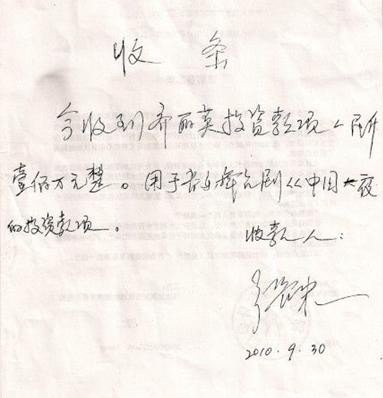 收条
今收到齐丽英投资款项人民币
壹佰万元整。用于音乐舞台剧《中国之夜
的投资款项。
收款人:
2010.9.30